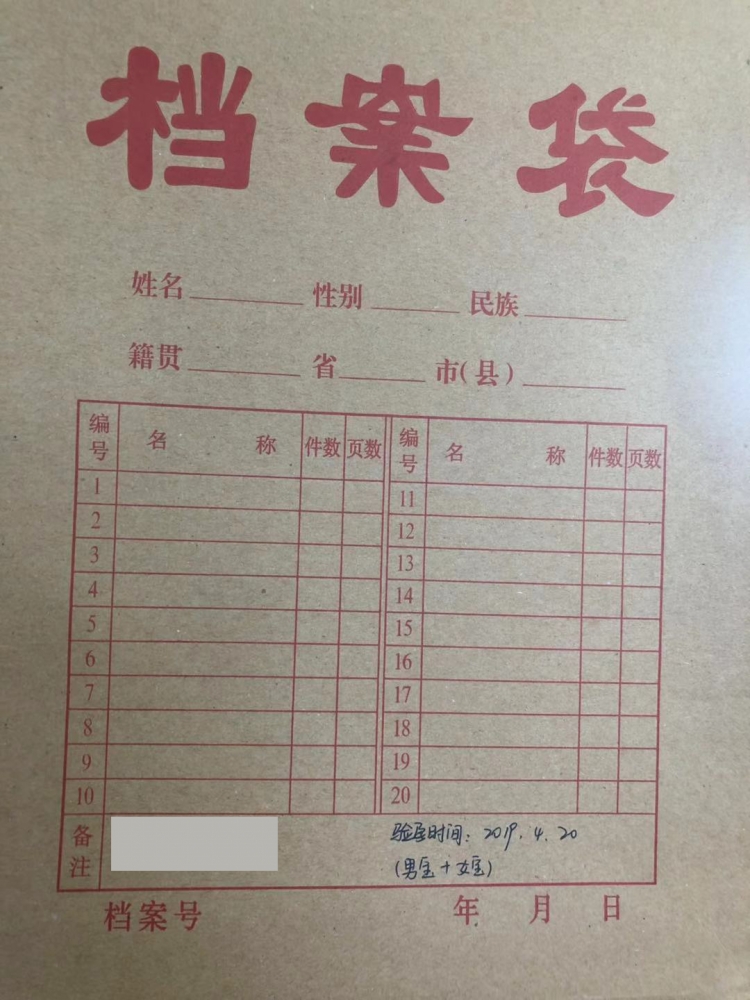 档案袋
姓名 性别 民族
籍贯 省 市(县)
编号 名称 件数 页数 编号 名称 件数 页数
1 11
2 12
3 13
4 14
5 15
6 16
7 17
8 18
9 19
10 20
备注 验房时间: 2019.4.20
(男宝+女宝)
档案号 年 月 日